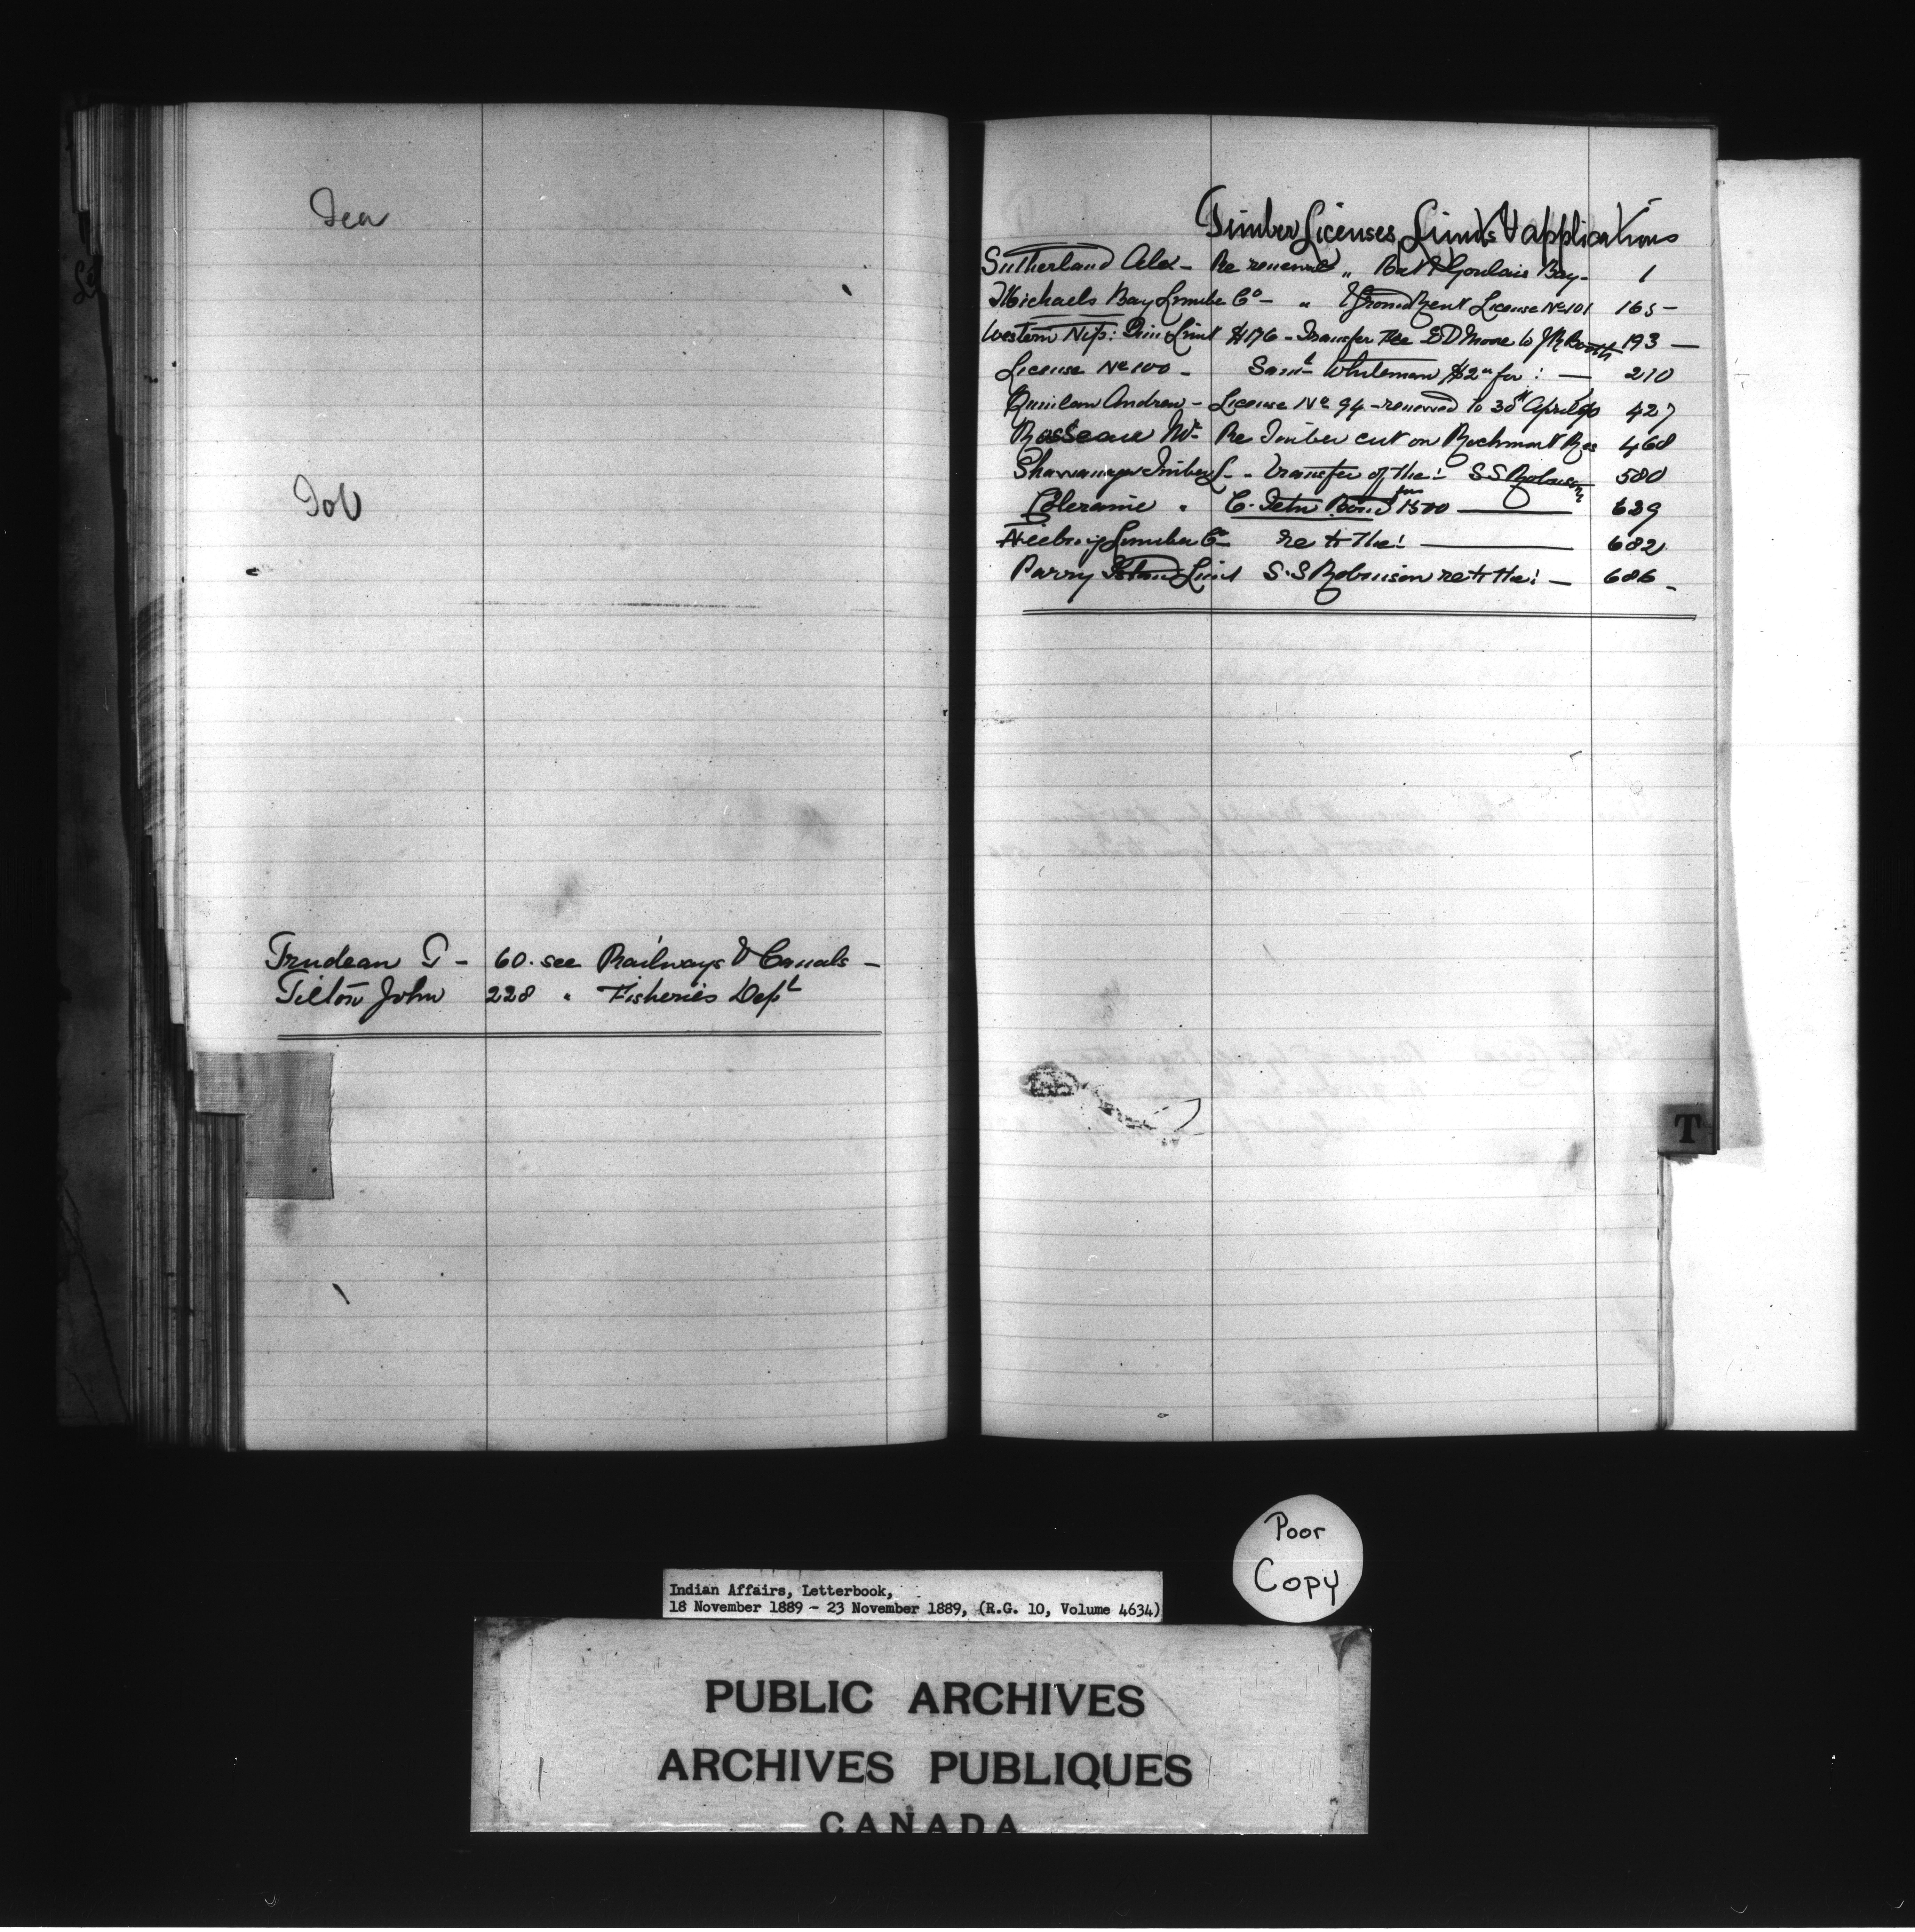 Tea
Tob
Trudeau T - 60. see Railways & Canals -
Tilton John 228 " Fisheries Dept
Timber Licenses, Limits & applications
Sutherland Alex - Re renewal " Bat Goulais Bay - 1
Michaels Bay Lumber Co - " Ground Rent License No 101 165 -
Western Nip: Limit $176 - Transfer E D Moore to J R Booth 193 -
License No 100 - Saml Whiteman $2 for : - 210
Quinlan Andrew - License No 94 - renewed to 30th April 90 427
Rosseau Mr Re Timber cut on Res 468
Shawanaga Timber L - " transfer of the: S S Robinson 580
" Bond 1500 - 629
Neebing Lumber Co re 682
Parry Island Limit S. S Robinson re - 686 -
T
Poor
Copy
Indian Affairs, Letterbook,
18 November 1889 - 23 November 1889, (R.G. 10, Volume 4634)
PUBLIC ARCHIVES
ARCHIVES PUBLIQUES
CANADA